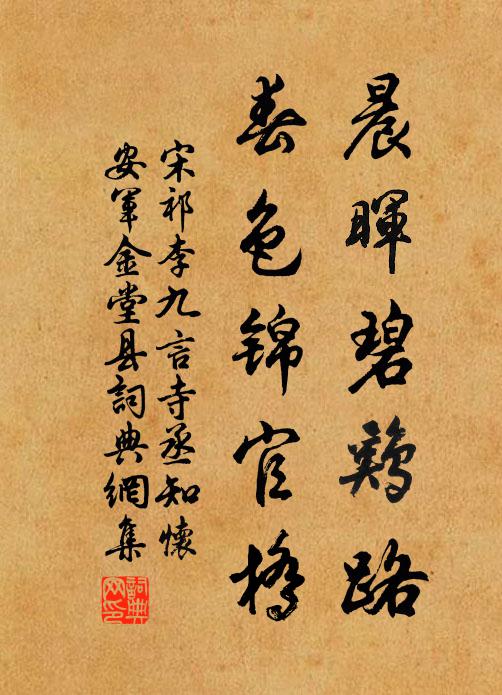 晨暉碧鷄路
春色錦官橋
宋祁李九言寺丞知懷
安軍金堂县詞典網集
詞典
网印